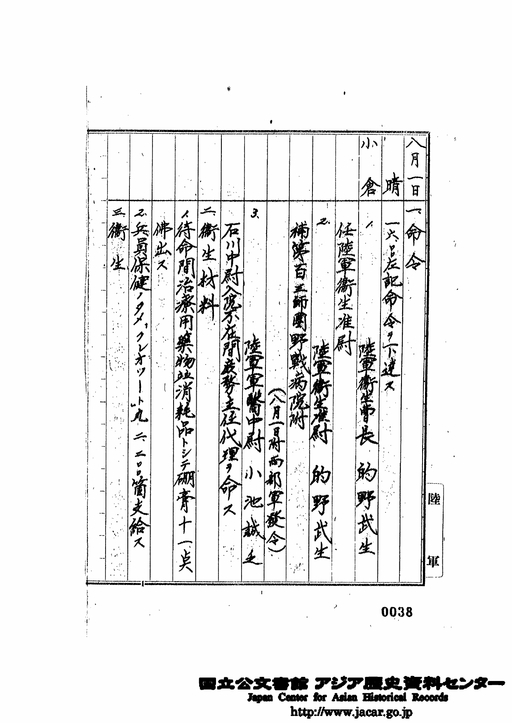 八月一日
晴
小倉
一、命令
一六、〇〇左記命令ヲ下達ス
1. 陸軍衛生曹長 的野武生
任陸軍衛生准尉
2. 陸軍衛生准尉 的野武生
補第百三師團野戰病院附
(八月一日附西部軍發令)
3. 陸軍軍醫中尉 小池誠之
石川中尉入院不在間庶務主任代理ヲ命ス
二、衛生材料
1、待命間治療用藥物並消耗品トシテ硼膏十一点
拂出ス
2、兵員保健ノタメ「クレオソート」丸 二、二〇〇箇支給ス
三、衛生
陸軍
0038
国立公文書館 アジア歴史資料センター
Japan Center for Asian Historical Records
http://www.jacar.go.jp